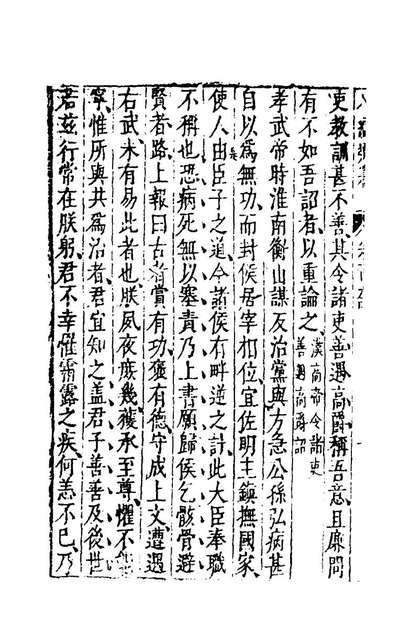 吏教訓甚不善其令諸吏善遇高爵稱吾意且廉問
有不如吾詔者以重論之漢高帝令諸吏
善遇高爵詔
孝武帝時淮南衡山謀反治黨與方急公孫弘病甚
自以為無功而封侯居宰相位宜佐明主鎮撫國家
使人由臣子之道今諸侯有畔逆之計此大臣奉職
不稱也恐病死無以塞責乃上書願歸侯乞骸骨避
賢者路上報曰古者賞有功襃有德守成上文遭遇
右武未有易此者也朕夙夜庶幾獲承至尊懼不能
寧惟所與共為治者君宜知之盖君子善善及後世
若茲行常在朕躬君不幸罹霜露之疾何恙不已乃